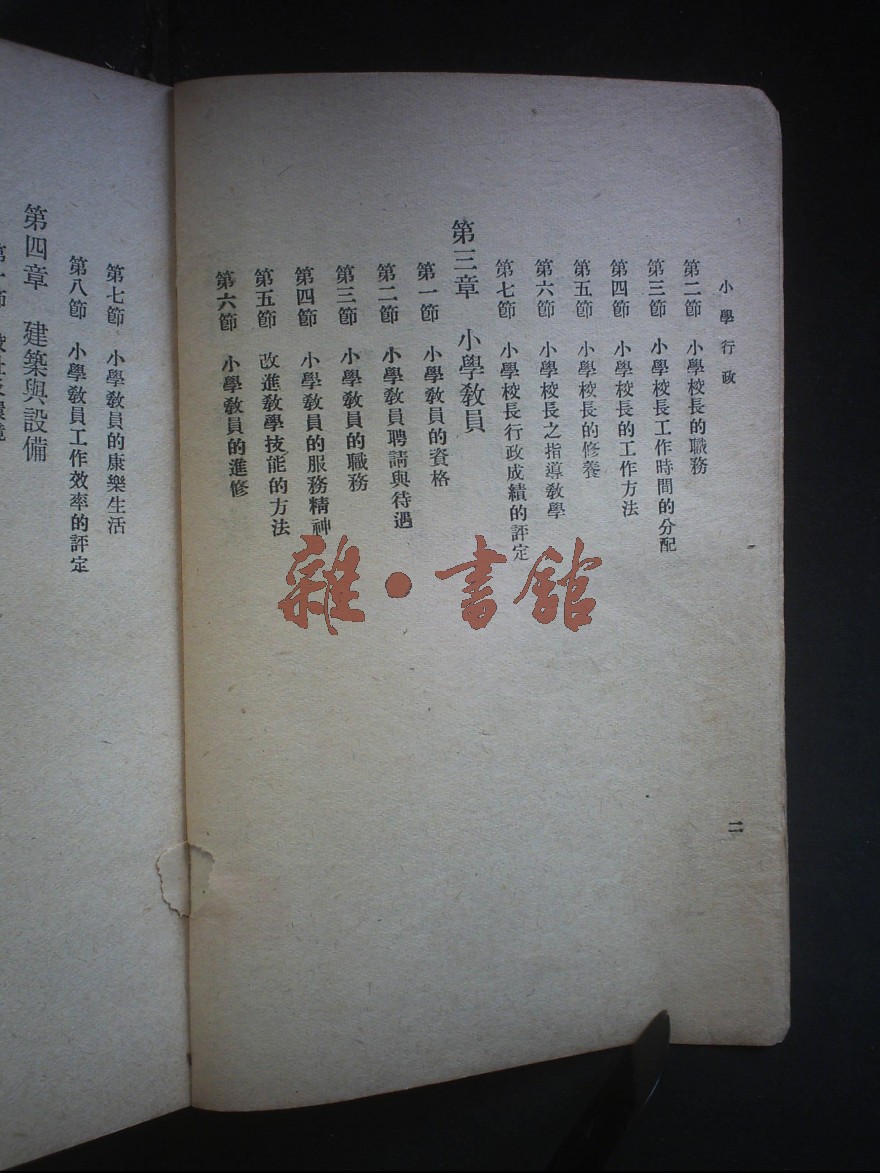 小學行政
第二節　小學校長的職務
第三節　小學校長工作時間的分配
第四節　小學校長的工作方法
第五節　小學校長的修養
第六節　小學校長之指導教學
第七節　小學校長行政成績的評定
第三章　小學教員
第一節　小學教員的資格
第二節　小學教員聘請與待遇
第三節　小學教員的職務
第四節　小學教員的服務精神
第五節　改進教學技能的方法
第六節　小學教員的進修
二
第七節　小學教員的康樂生活
第八節　小學教員工作效率的評定
第四章　建築與設備
雜·書館